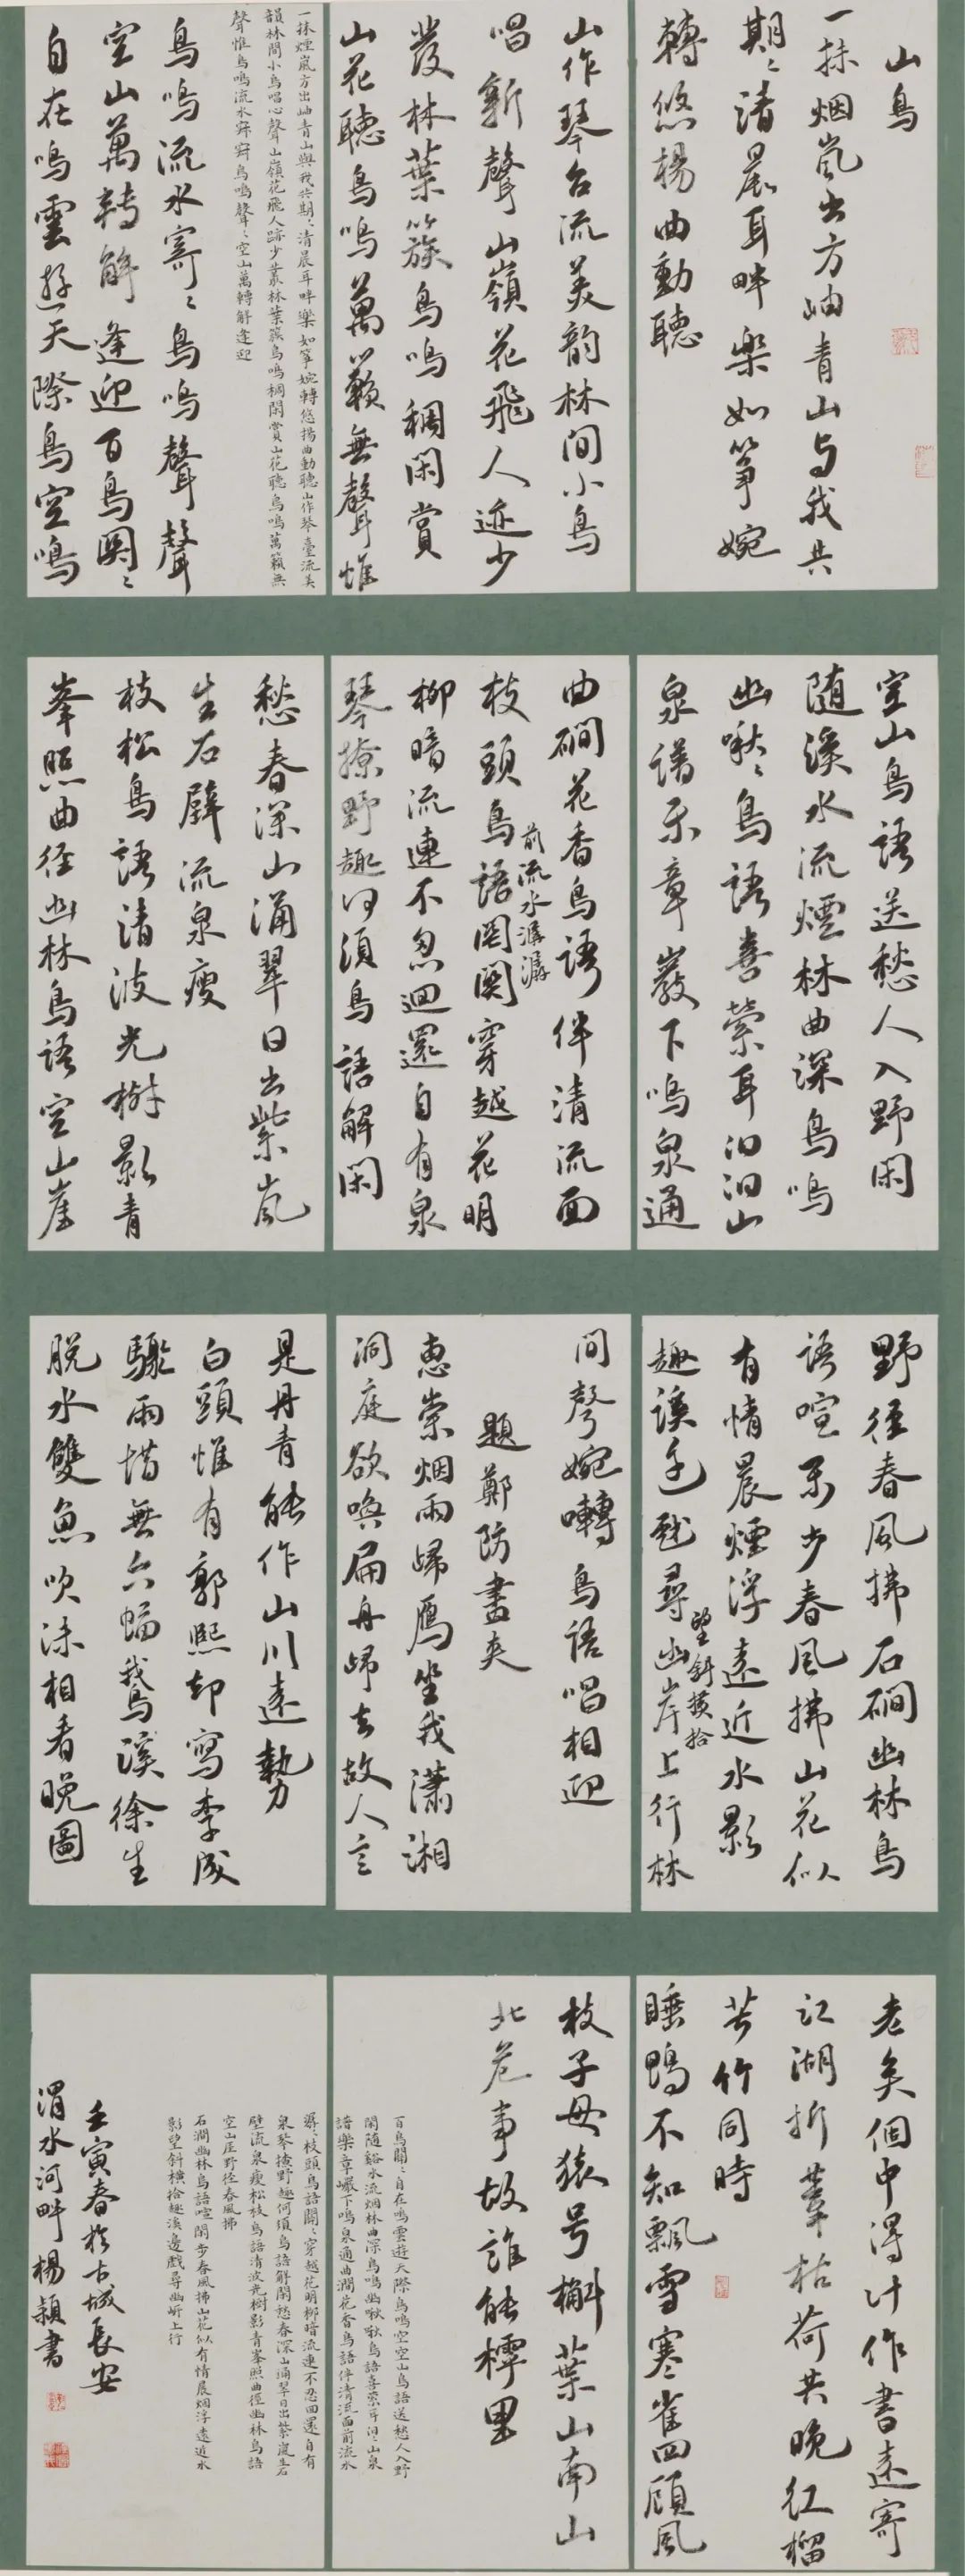 山鳥
一抹烟嵐出方岫青山与我共
期〻清晨耳畔樂如箏婉
轉悠楊曲動聽
山作琴台流美韵林间小鳥
唱新聲山嶺花飛人迹少
叢林葉簇鳥鳴稠闲賞
山花聽鳥鳴萬籟無聲惟
一抹煙嵐方出岫青山與我共期〻清晨耳畔樂如箏婉轉悠揚曲動聽山作琴臺流美
韻林間小鳥唱心聲山嶺花飛人跡少叢林葉簇鳥鳴稠閑賞山花聽鳥鳴萬籟無
聲惟鳥鳴流水寂寂鳥鳴聲〻空山萬轉解逢迎
鳥鳴流水寄〻鳥鳴聲聲
空山萬轉解逢迎百鳥関〻
自在鳴雲遊天際鳥空鳴
空山鳥語送愁人入野闲
随溪水流煙林曲深鳥鳴
幽啾〻鳥語喜縈耳汩汩山
泉譜乐章巖下鳴泉通
曲磵花香鳥语伴清流面
前流水潺潺
枝頭鳥語関関穿越花明
柳暗流連不忍迴還自有泉
琴撩野趣何須鳥語解闲
愁春深山涌翠日出紫嵐
生石壁流泉瘦
枝松鳥語清波光樹影青
峯照曲径幽林鳥语空山崖
野径春風拂石磵幽林鳥
语喧乐步春風拂山花似
有情晨煙浮遠近水影
望斜横拾
趣溪邊戲尋幽岸上行林
间聲婉囀鳥语唱相迎
題鄭防畫夾
惠崇烟雨歸鴈坐我瀟湘
洞庭欲喚扁舟歸去故人言
是丹青能作山川遠勢
白頭惟有郭熙却寫李成
驟雨惜無六幅鵞溪徐生
脱水雙魚吹沫相看晚圖
老矣個中得计作書遠寄
江湖折葦枯荷共晚红榴
苦竹同時
睡鴨不知飄雪寒雀四顧風
枝子母猿号槲葉山南山
北危事故誰能樗里
百鳥關〻自在鳴雲遊天際鳥鳴空空山鳥語送愁人入野
閑隨谿水流烟林曲深鳥鳴幽啾啾鳥語喜縈耳汩〻山泉
譜樂章巖下鳴泉通曲澗花香鳥語伴清流面前流水
潺〻枝頭鳥語關〻穿越花明柳暗流連不忍回還自有
泉琴撩野趣何須鳥語解閑愁春深山涌翠日出紫嵐生石
壁流泉瘦松枝鳥語清波光樹影青峯照曲徑幽林鳥語
空山崖野徑春風拂
石澗幽林鳥語喧閑步春風拂山花似有情晨烟浮遠近水
影望斜橫拾趣溪邊戲尋幽岍上行
壬寅春於古城長安
渭水河畔楊穎書